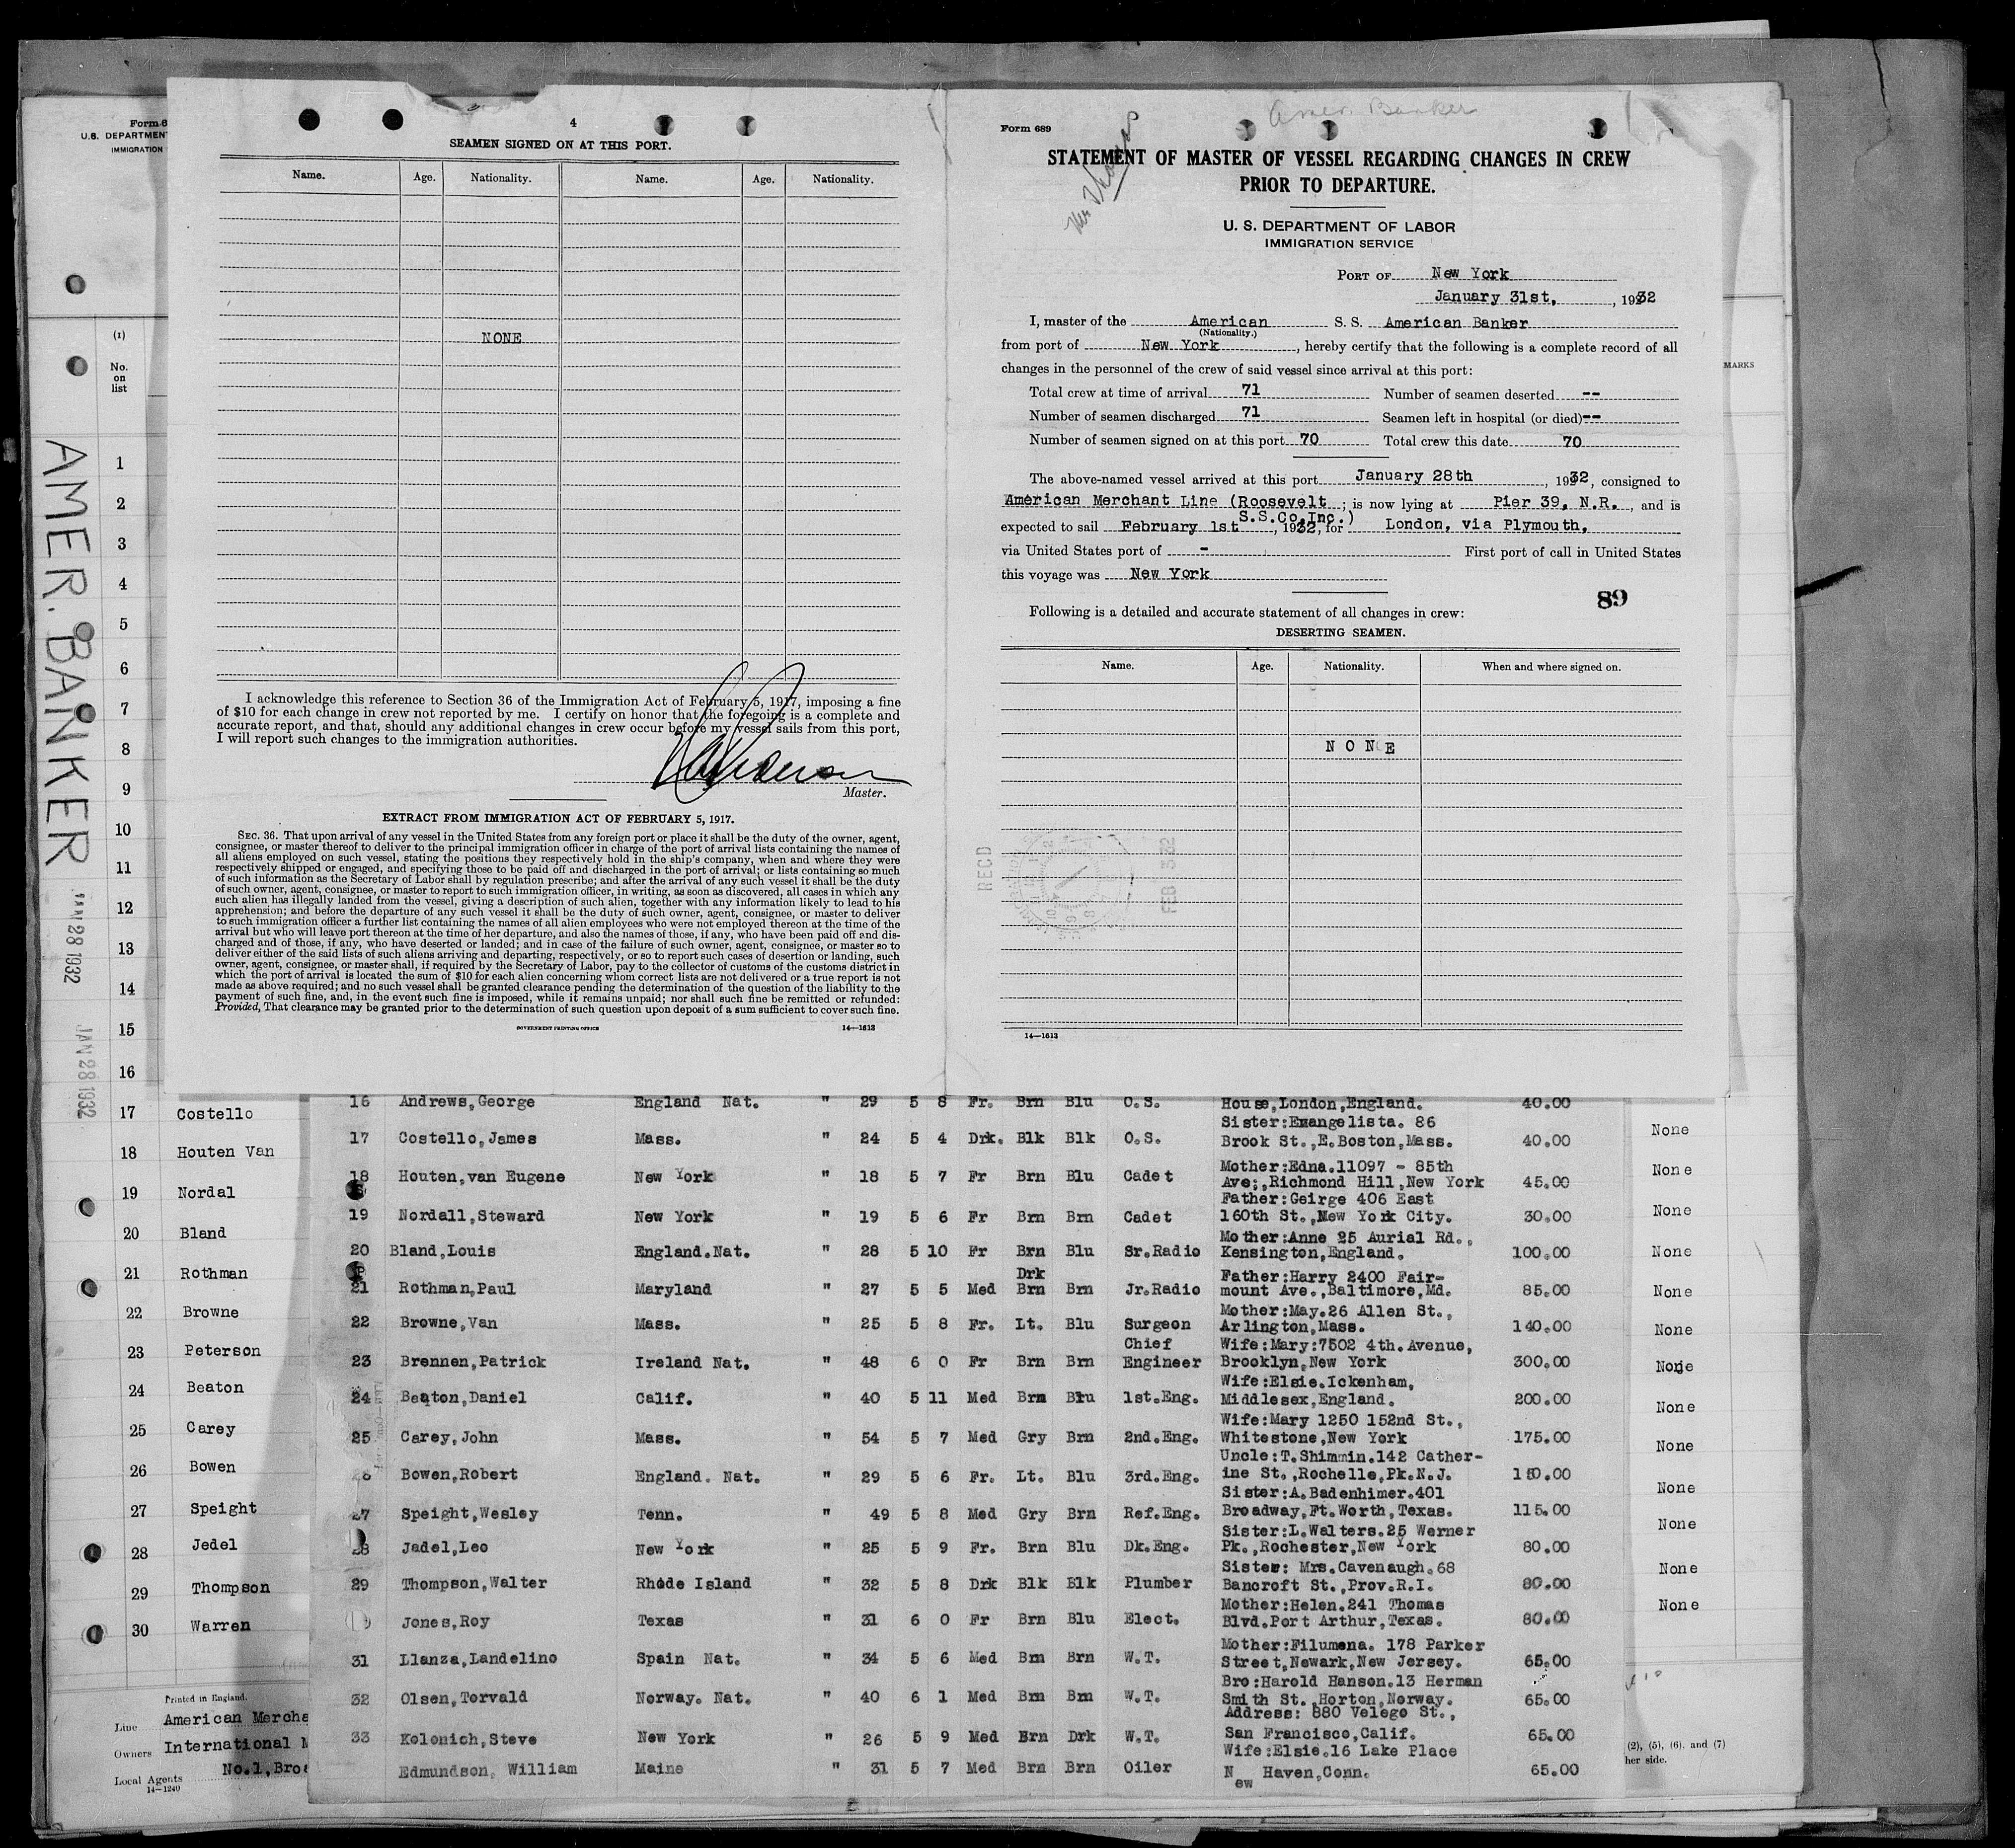 Form 6
U.S. DEPARTMENT
IMMIGRATION
(1)
No.
on
list
AMER. BANKER
JAN 28 1932
JAN 28 1932
1
2
3
4
5
6
7
8
9
10
11
12
13
14
15
16
17 Costello
18 Houten Van
19 Nordal
20 Bland
21 Rothman
22 Browne
23 Peterson
24 Beaton
25 Carey
26 Bowen
27 Speight
28 Jedel
29 Thompson
30 Warren
Printed in England.
Line American Mercha
Owners International M
Local Agents No.1,Broa
14—1240
4
SEAMEN SIGNED ON AT THIS PORT.
Name. Age. Nationality. Name. Age. Nationality.
NONE
I acknowledge this reference to Section 36 of the Immigration Act of February 5, 1917, imposing a fine
of $10 for each change in crew not reported by me. I certify on honor that the foregoing is a complete and
accurate report, and that, should any additional changes in crew occur before my vessel sails from this port,
I will report such changes to the immigration authorities.
Master.
EXTRACT FROM IMMIGRATION ACT OF FEBRUARY 5, 1917.
SEC. 36. That upon arrival of any vessel in the United States from any foreign port or place it shall be the duty of the owner, agent,
consignee, or master thereof to deliver to the principal immigration officer in charge of the port of arrival lists containing the names of
all aliens employed on such vessel, stating the positions they respectively hold in the ship's company, when and where they were
respectively shipped or engaged, and specifying those to be paid off and discharged in the port of arrival; or lists containing so much
of such information as the Secretary of Labor shall by regulation prescribe; and after the arrival of any such vessel it shall be the duty
of such owner, agent, consignee, or master to report to such immigration officer, in writing, as soon as discovered, all cases in which any
such alien has illegally landed from the vessel, giving a description of such alien, together with any information likely to lead to his
apprehension; and before the departure of any such vessel it shall be the duty of such owner, agent, consignee, or master to deliver
to such immigration officer a further list containing the names of all alien employees who were not employed thereon at the time of the
arrival but who will leave port thereon at the time of her departure, and also the names of those, if any, who have been paid off and dis-
charged and of those, if any, who have deserted or landed; and in case of the failure of such owner, agent, consignee, or master so to
deliver either of the said lists of such aliens arriving and departing, respectively, or so to report such cases of desertion or landing, such
owner, agent, consignee, or master shall, if required by the Secretary of Labor, pay to the collector of customs of the customs district in
which the port of arrival is located the sum of $10 for each alien concerning whom correct lists are not delivered or a true report is not
made as above required; and no such vessel shall be granted clearance pending the determination of the question of the liability to the
payment of such fine, and, in the event such fine is imposed, while it remains unpaid; nor shall such fine be remitted or refunded:
Provided, That clearance may be granted prior to the determination of such question upon deposit of a sum sufficient to cover such fine.
GOVERNMENT PRINTING OFFICE 14—1613
Amer. Banker
Form 689
STATEMENT OF MASTER OF VESSEL REGARDING CHANGES IN CREW
PRIOR TO DEPARTURE.
U. S. DEPARTMENT OF LABOR
IMMIGRATION SERVICE
PORT OF New York
January 31st, , 1932
I, master of the American S. S. American Banker
(Nationality.)
from port of New York, hereby certify that the following is a complete record of all
changes in the personnel of the crew of said vessel since arrival at this port:
Total crew at time of arrival 71 Number of seamen deserted --
Number of seamen discharged 71 Seamen left in hospital (or died)--
Number of seamen signed on at this port 70 Total crew this date 70
The above-named vessel arrived at this port January 28th , 1932, consigned to
American Merchant Line (Roosevelt ; is now lying at Pier 39, N.R., and is
S.S.Co,Inc.)
expected to sail February 1st , 1932, for London, via Plymouth,
via United States port of - First port of call in United States
this voyage was New York
89
Following is a detailed and accurate statement of all changes in crew:
DESERTING SEAMEN.
Name. Age. Nationality. When and where signed on.
NONE
RECD
FEB 3 32
14—1613
MARKS
House,London,England.
16 Andrews,George England Nat. " 29 5 8 Fr. Brn Blu O.S. 40.00
Sister:Emangelista. 86
17 Costello,James Mass. " 24 5 4 Drk. Blk Blk O.S. Brook St.,E.Boston,Mass. 40.00 None
Mother:Edna.11097 - 85th
18 Houten,van Eugene New York " 18 5 7 Fr Brn Blu Cadet Ave;,Richmond Hill,New York 45.00 None
Father:Geirge 406 East
19 Nordall,Steward New York " 19 5 6 Fr Brn Brn Cadet 160th St.,New York City. 30.00 None
Mother:Anne 25 Aurial Rd.,
20 Bland,Louis England.Nat. " 28 5 10 Fr Brn Blu Sr.Radio Kensington,England. 100.00 None
Drk Father:Harry 2400 Fair-
21 Rothman,Paul Maryland " 27 5 5 Med Brn Brn Jr.Radio mount Ave.,Baltimore,Md. 85.00 None
Mother:May.26 Allen St.,
22 Browne,Van Mass. " 25 5 8 Fr. Lt. Blu Surgeon Arlington,Mass. 140.00 None
Chief Wife:Mary:7502 4th.Avenue,
23 Brennen,Patrick Ireland Nat. " 48 6 0 Fr Brn Brn Engineer Brooklyn,New York 300.00 None
Wife:Elsie.Ickenham,
24 Beaton,Daniel Calif. " 40 5 11 Med Brn Blu 1st.Eng. Middlesex,England. 200.00 None
Wife:Mary 1250 152nd St.,
25 Carey,John Mass. " 54 5 7 Med Gry Brn 2nd.Eng. Whitestone,New York 175.00 None
Uncle:T.Shimmin.142 Cather-
26 Bowen,Robert England. Nat. " 29 5 6 Fr. Lt. Blu 3rd.Eng. ine St.,Rochelle,Pk.N.J. 150.00 None
Sister:A.Badenhimer.401
27 Speight,Wesley Tenn. " 49 5 8 Med Gry Brn Ref.Eng. Broadway,Ft.Worth,Texas. 115.00 None
Sister:L.Walters.25 Werner
28 Jadel,Leo New York " 25 5 9 Fr. Brn Blu Dk.Eng. Pk.,Rochester,New York 80.00 None
Sister: Mrs.Cavenaugh.68
29 Thompson,Walter Rhode Island " 32 5 8 Drk Blk Blk Plumber Bancroft St.,Prov.R.I. 80.00 None
Mother:Helen.241 Thomas
Jones,Roy Texas " 31 6 0 Fr Brn Blu Elect. Blvd.Port Arthur,Texas. 80.00
Mother:Filumena. 178 Parker
31 Llanza,Landelino Spain Nat. " 34 5 6 Med Brn Brn W.T. Street,Newark,New Jersey. 65.00
Bro:Harold Hanson.13 Herman
32 Olsen,Torvald Norway. Nat. " 40 6 1 Med Brn Brn W.T. Smith St.,Horton,Norway. 65.00
Address: 880 Velego St.,
33 Kolonich,Steve New York " 26 5 9 Med Brn Drk W.T. San Francisco,Calif. 65.00
Wife:Elsie.16 Lake Place
Edmundson, William Maine " 31 5 7 Med Brn Brn Oiler New Haven,Conn. 65.00
(2), (5), (6), and (7)
her side.